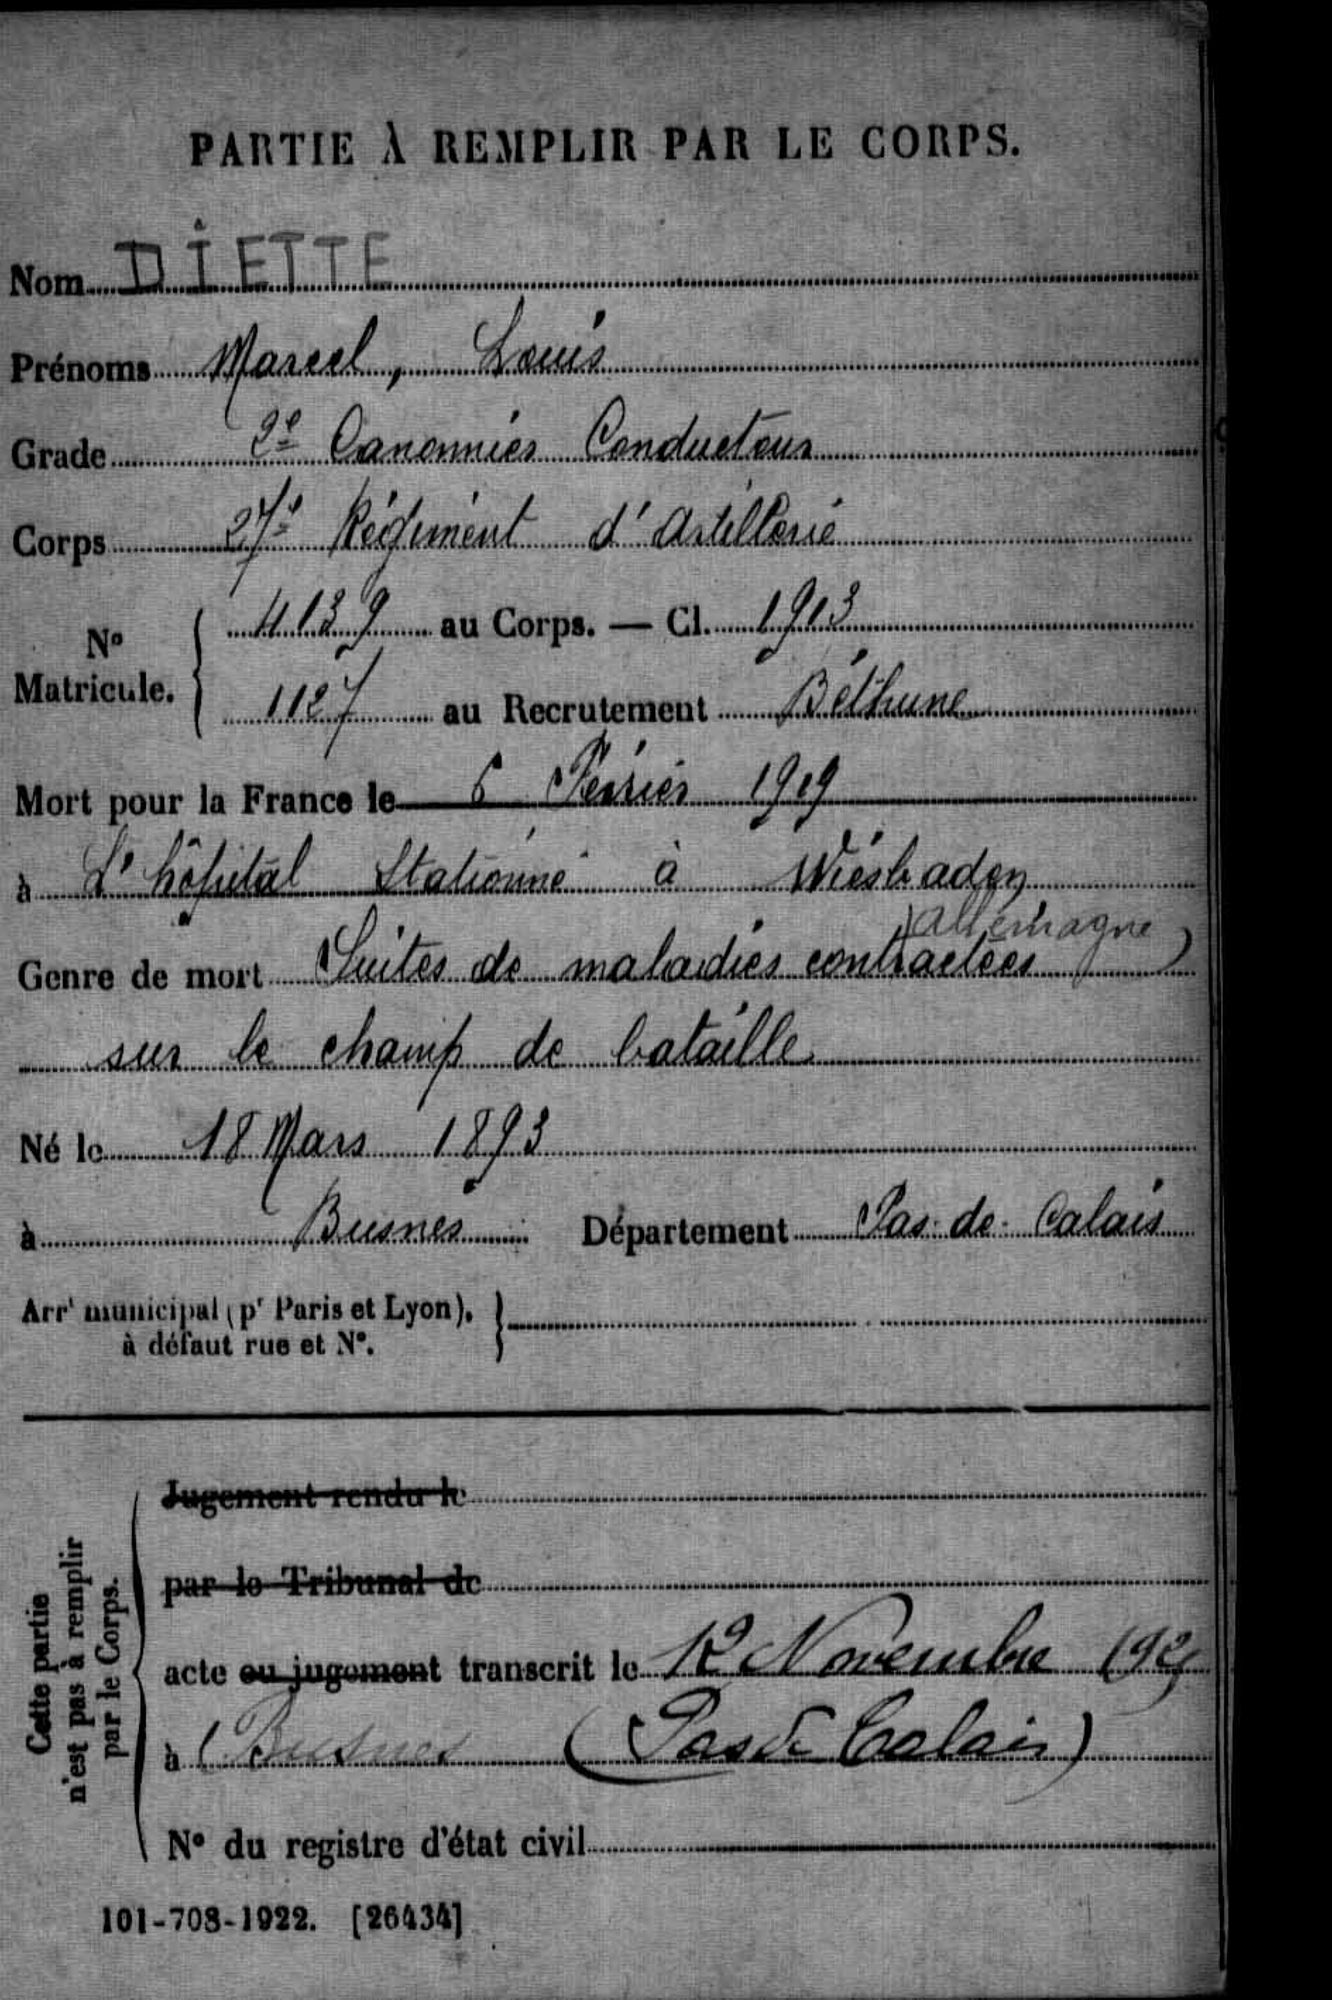 PARTIE À REMPLIR PAR LE CORPS.
Nom DIETTE
Prénoms Marcel, Louis
Grade 2e Canonnier Conducteur
Corps 27e Régiment d'Artillerie
No Matricule. { 4139 au Corps. — Cl. 1913
1127 au Recrutement Béthune
Mort pour la France le 6 Février 1919
à L'hôpital Stationné à Wiesbaden
(Allemagne)
Genre de mort Suites de maladies contractées
sur le champ de bataille
Né le 18 Mars 1893
à Busnes Département Pas-de-Calais
Arrt municipal (pr Paris et Lyon),
à défaut rue et No.
Cette partie
n'est pas à remplir
par le Corps.
Jugement rendu le
par le Tribunal de
acte ou jugement transcrit le 12 Novembre
à Busnes (Pas de Calais)
No du registre d'état civil
101-708-1922. [26434]